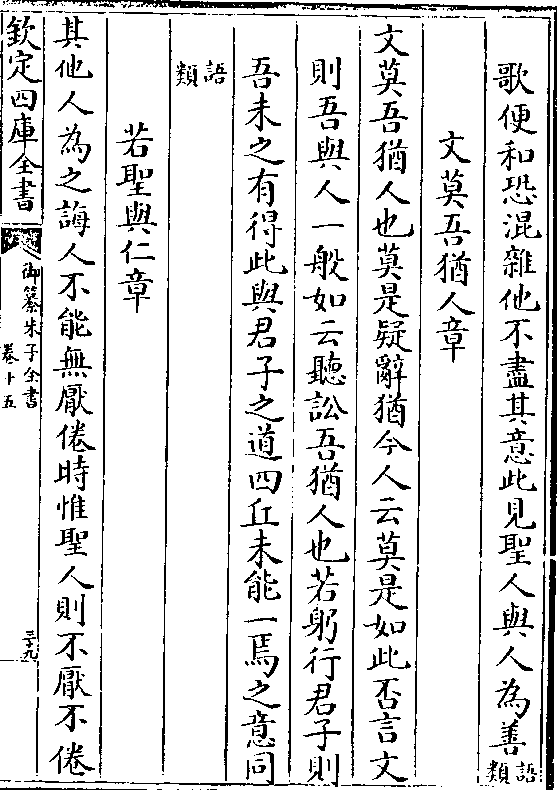 歌便和恐混雜他不盡其意此見聖人與人為善語類
文莫吾猶人章
文莫吾猶人也莫是疑辭猶今人云莫是如此否言文
則吾與人一般如云聽訟吾猶人也若躬行君子則
吾未之有得此與君子之道四丘未能一焉之意同
語類
若聖與仁章
其他人為之誨人不能無厭倦時惟聖人則不厭不倦
欽定四庫全書
御纂朱子全書
卷十五
三十九